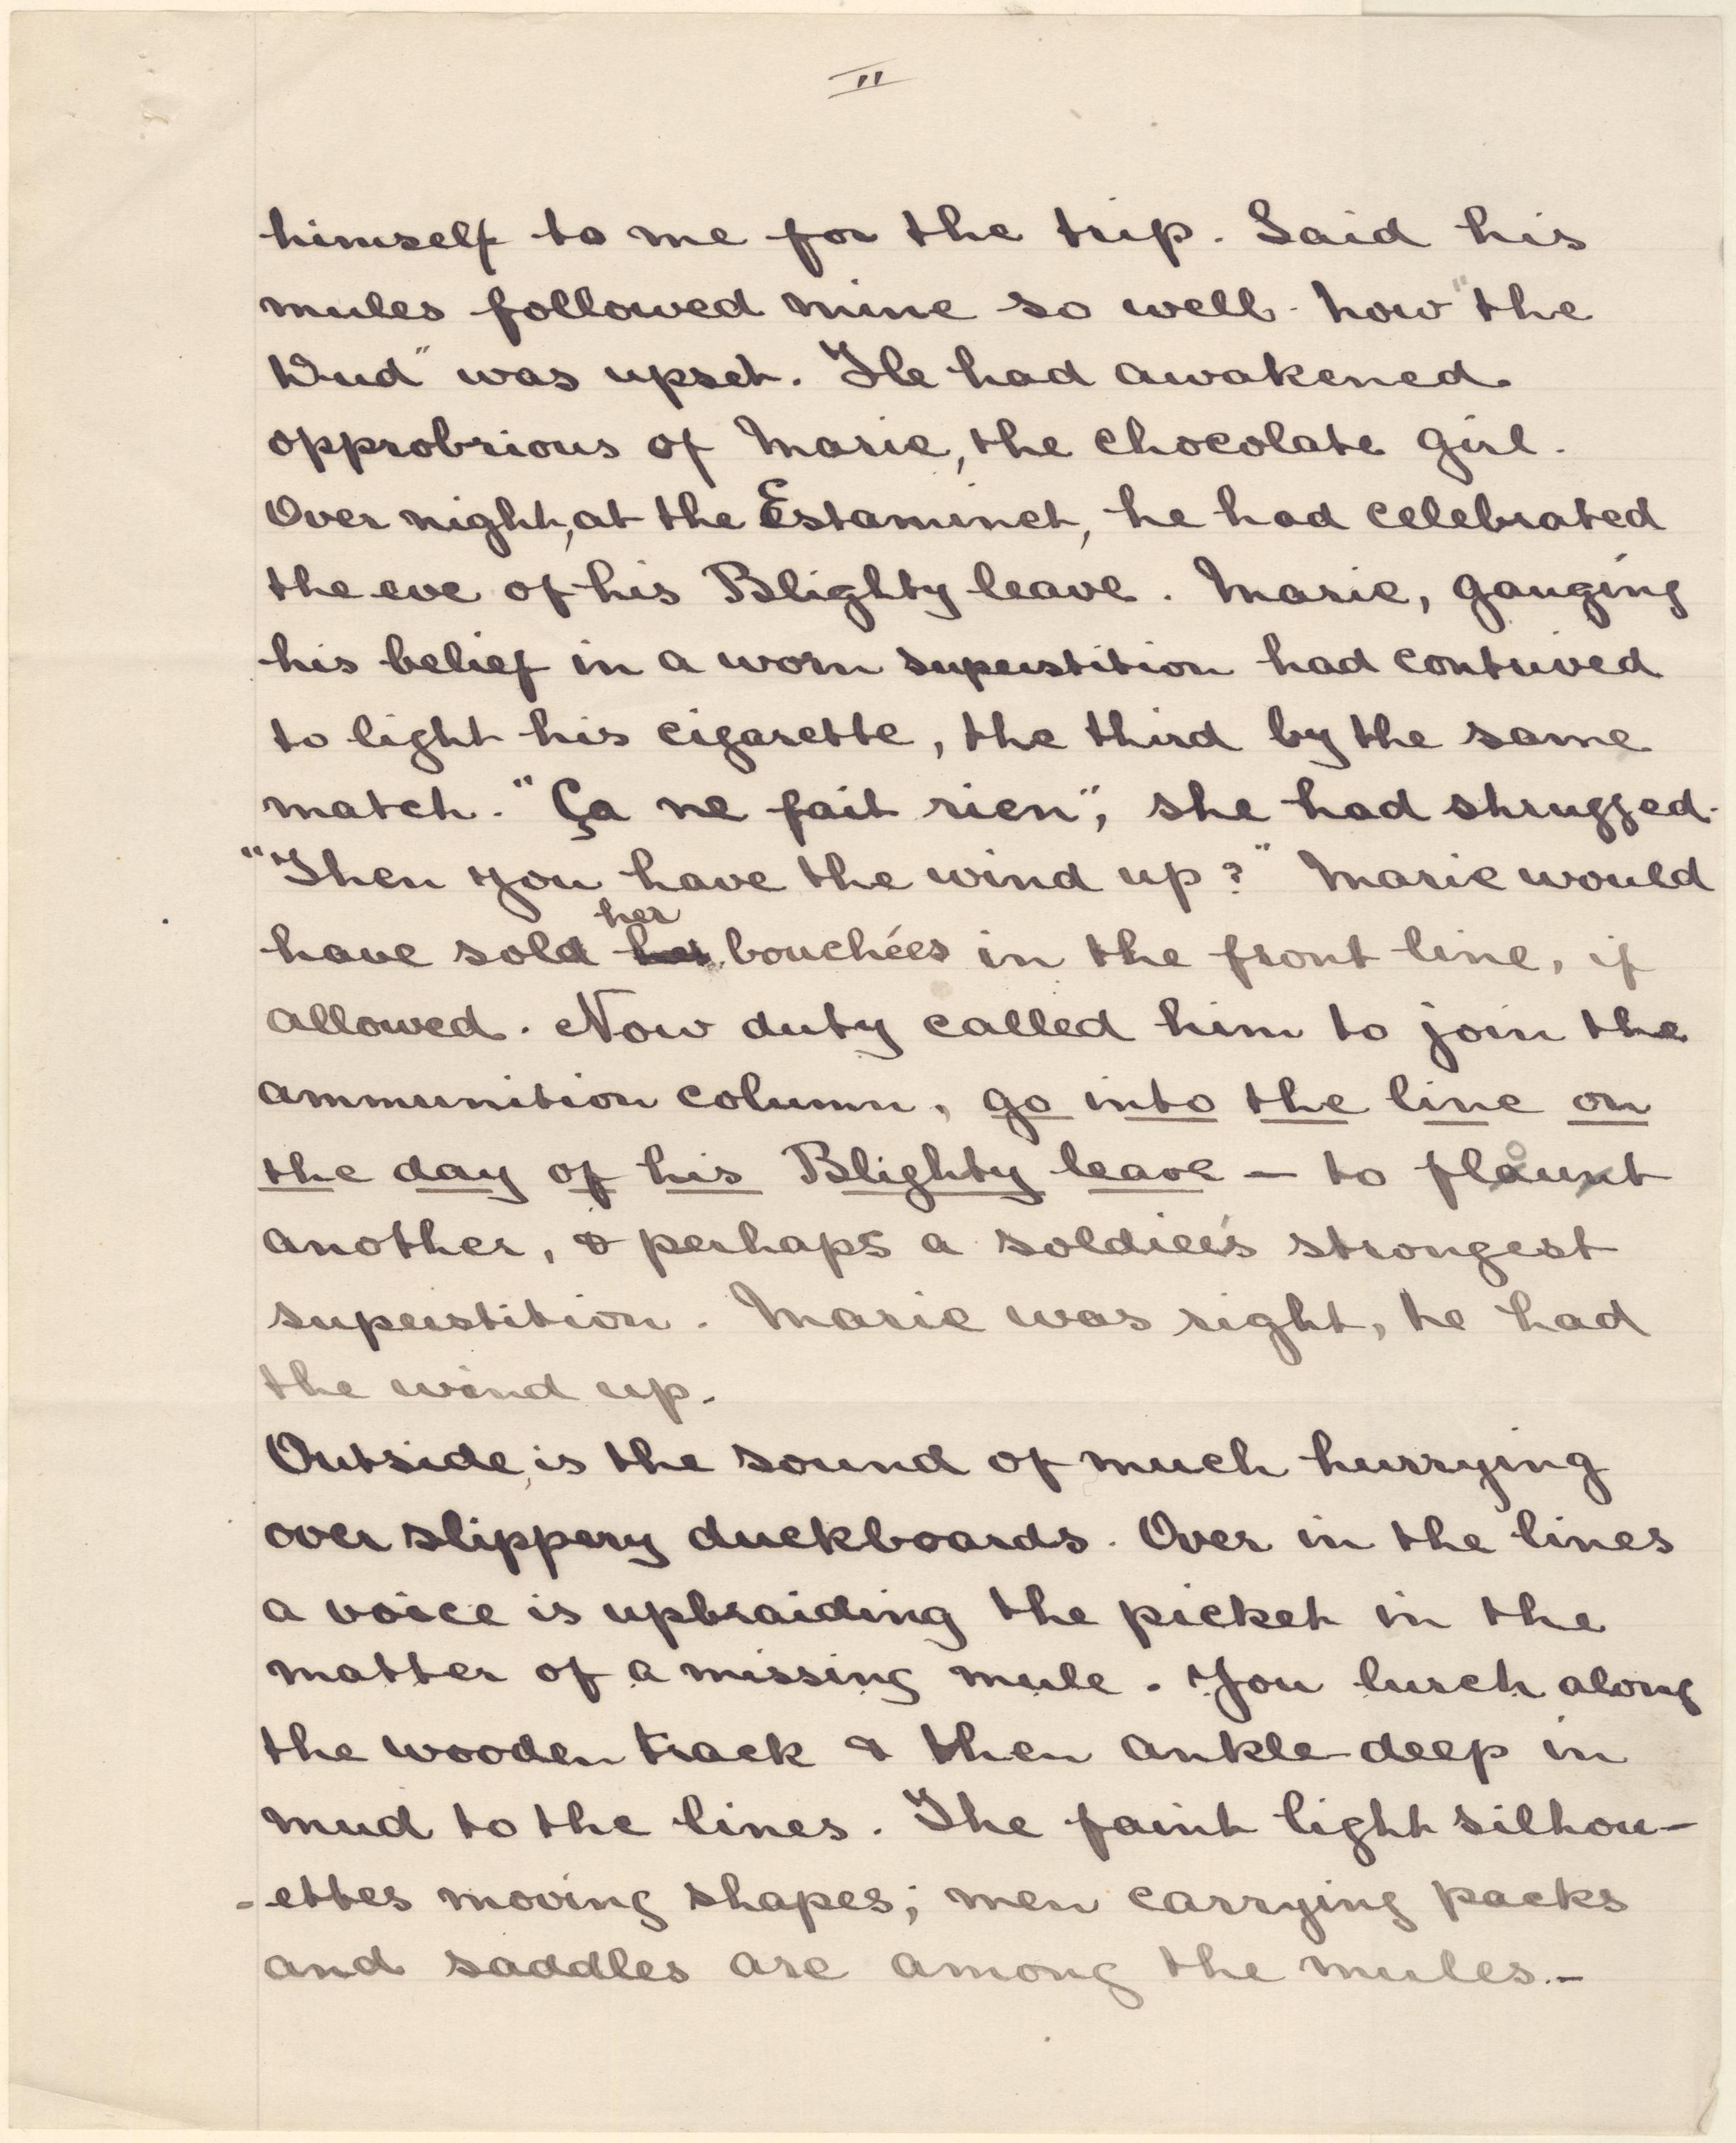 II
himself to me for the trip. Said his
mules followed mine so well. Now "the
Wud" was upset. He had awakened
opprobrious of Marie, the chocolate girl.
Over night, at the Estaminet, he had celebrated
the eve of his Blighty leave. Marie, gauging
his belief in a worn superstition had contrived
to light his cigarette, the third by the same
match. "Ça ne fait rien", she had shrugged.
"Then you have the wind up?" Marie would
have sold her bouchées in the front line, if
allowed. Now duty called him to join the
ammunition column, go into the line on
the day of his Blighty leave — to flout
another, & perhaps a soldier's strongest
superstition. Marie was right, he had
the wind up.
Outside, is the sound of much hurrying
over slippery duckboards. Over in the lines
a voice is upbraiding the picket in the
matter of a missing mule. You lurch along
the wooden track & then ankle-deep in
mud to the lines. The faint light silhou-
-ettes moving shapes; men carrying packs
and saddles are among the mules.-